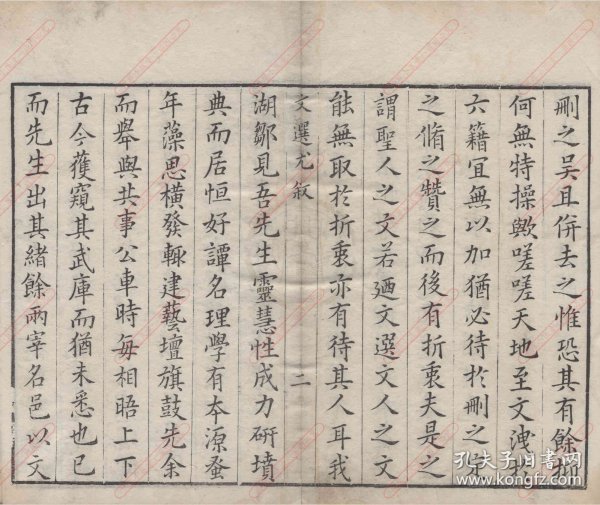 刪之吴且併去之惟恐其有餘抑
何無特操歟嗟嗟天地至文洩於
六籍宜無以加猶必待於刪之定
之脩之贊之而後有折衷夫是之
謂聖人之文若廼文選文人之文
能無取於折衷亦有待其人耳我
文選尤叙
二
湖鄒見吾先生靈慧性成力研墳
典而居恒好譚名理學有本源蚤
年藻思橫發輙建藝壇旗鼓先余
而舉與共事公車時每相晤上下
古今獲窺其武庫而猶未悉也已
而先生出其緒餘兩宰名邑以文
孔夫子旧书网
www.kongfz.com